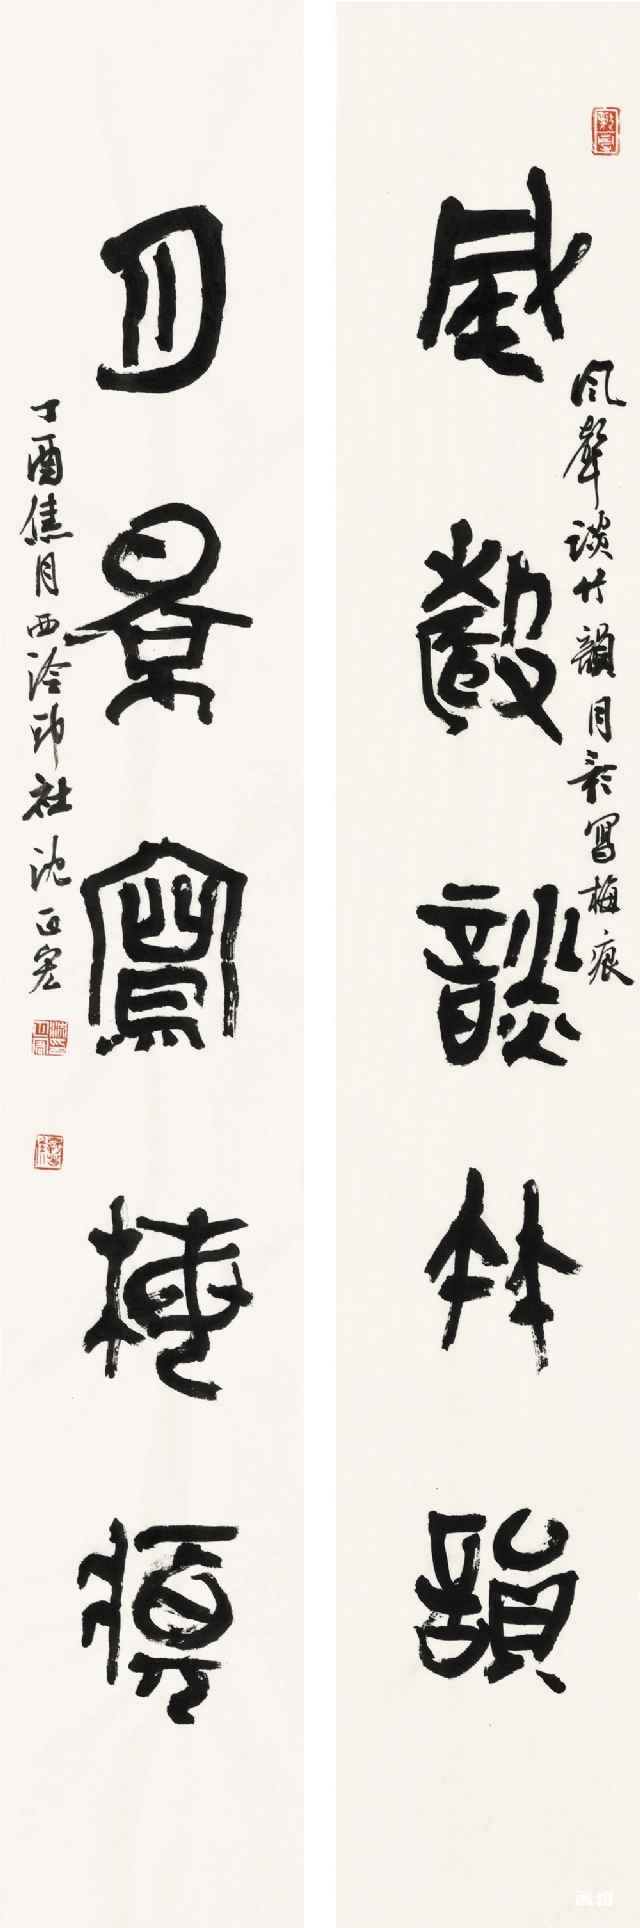 風聲談竹韻
風聲談竹韻月影寫梅痕
月景寫梅痕
丁酉焦月西泠印社沈正宏
画悟